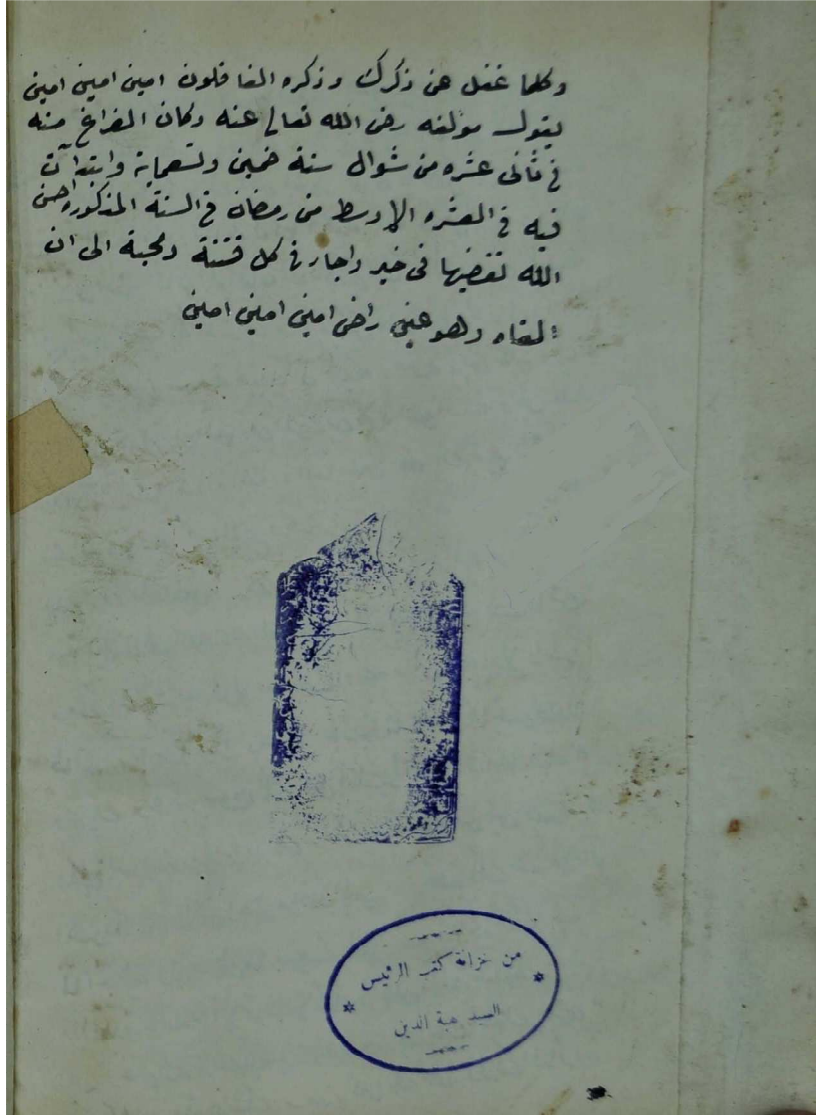 وكلما غفل عن ذكرك وذكره الغافلون امين امين امين
يقول مؤلفه رضى الله تعالى عنه وكان الفراغ منه
فى ثانى عشره من شوال سنة خمسين وتسعماية وابتدأت
فيه فى العشره الاوسط من رمضان فى السنة المذكوره احسن
الله تقضيها فى خير واجارنا كل فتنة ومحبة الى ان
نلقاه وهو عنى راضى امين امين امين
من خزانة كتب الرئيس
السيد هبة الدين